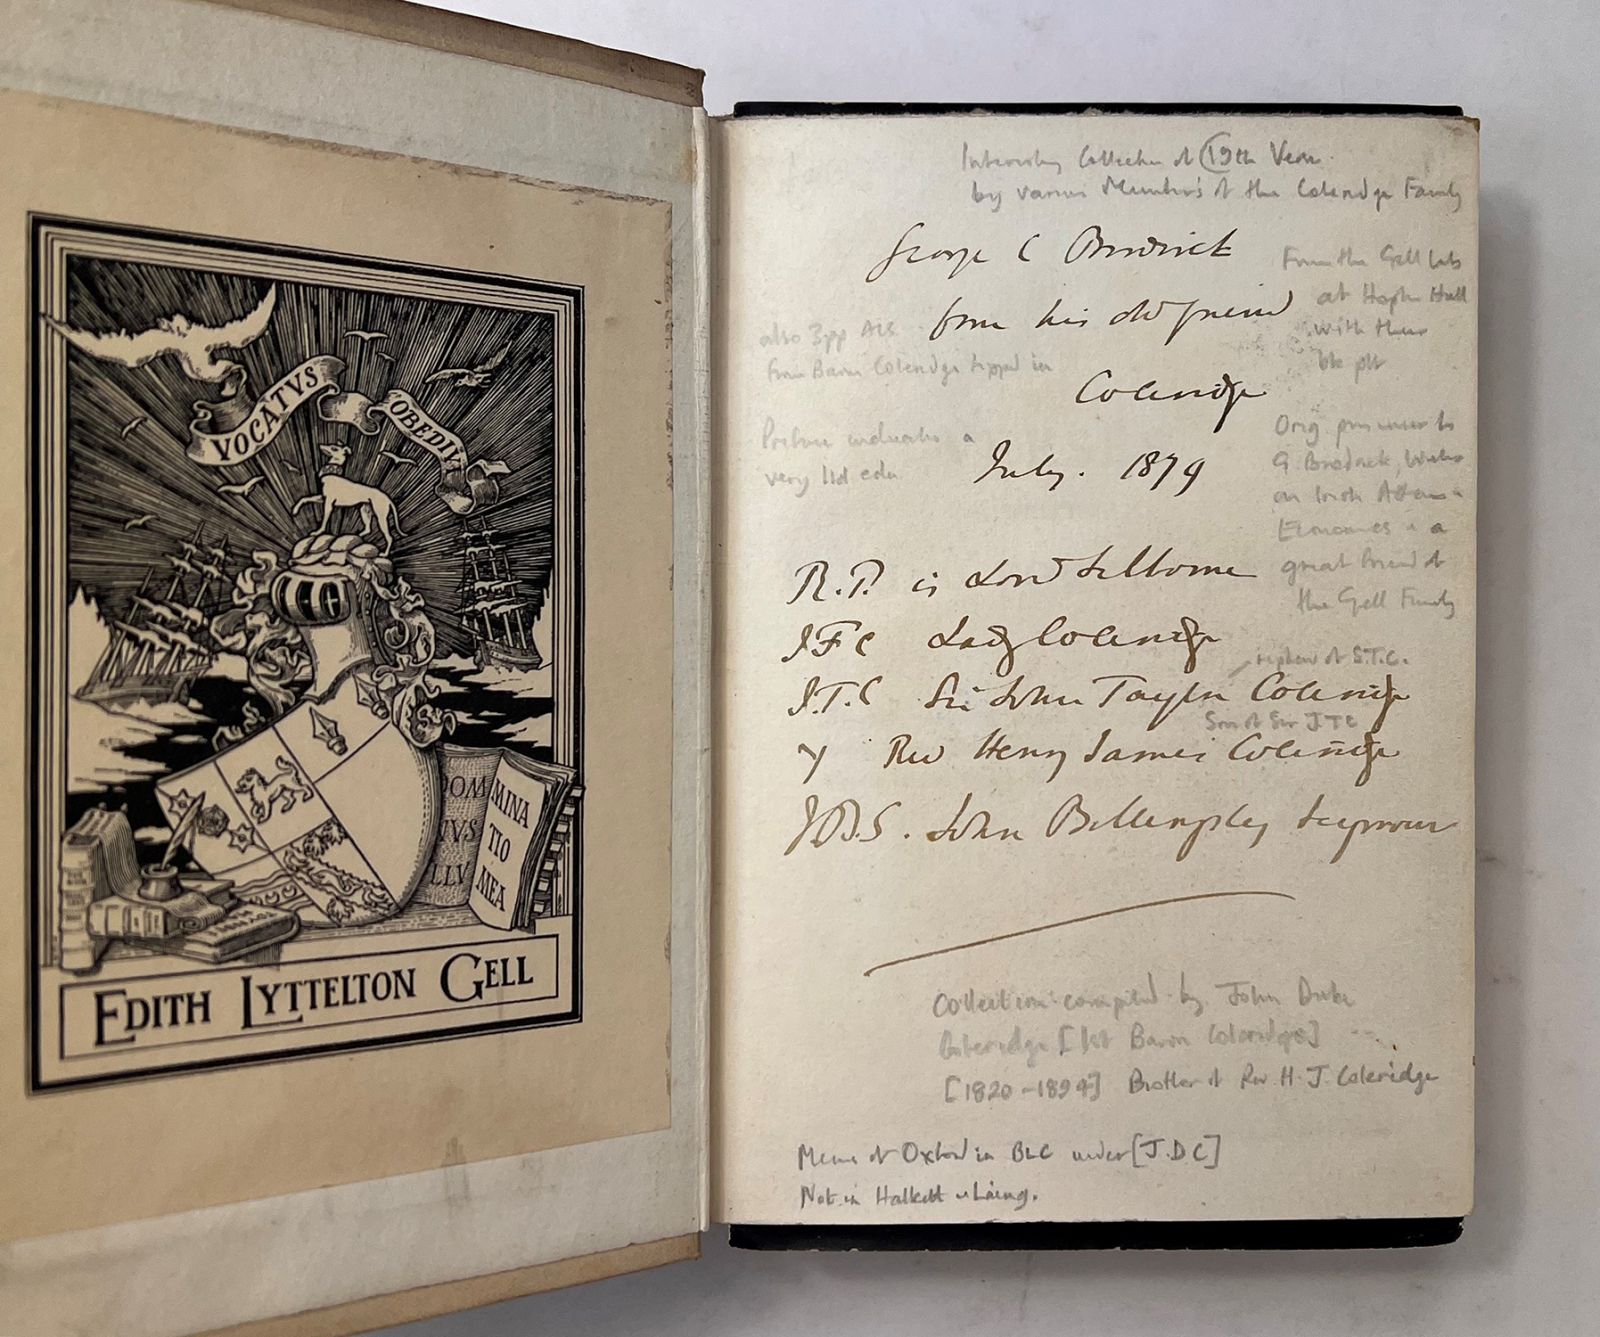 VOCATVS
OBEDIV
DOM
TVS
LLV
MINA
TIO
MEA
EDITH LYTTELTON GELL
Interesting Collection of 19th Verse
by various Members of the Coleridge Family
George C Brodrick
from his old friend
Coleridge
July. 1879
also 3pp ALS
from Baron Coleridge tipped in
Preface indicates a
very ltd edn
From the Gell lib
at Hopton Hall
with their
bk plt
Orig
G. Brodrick, Writer
on Irish
Economics & a
great friend of
the Gell Family
R.P. is Lord Selborne
J F C Lady Coleridge
nephew of S.T.C.
J.T.C Sir John Taylor Coleridge
Son of Sir J T C
γ Rev Henry James Coleridge
J.B.S. John Billingsley Seymour
Collection compiled by John Duke
Coleridge [1st Baron Coleridge]
[1820-1894] Brother of Rev H. J. Coleridge
Mems of Oxford in BLC under [J.D.C]
Not in Halkett & Laing.